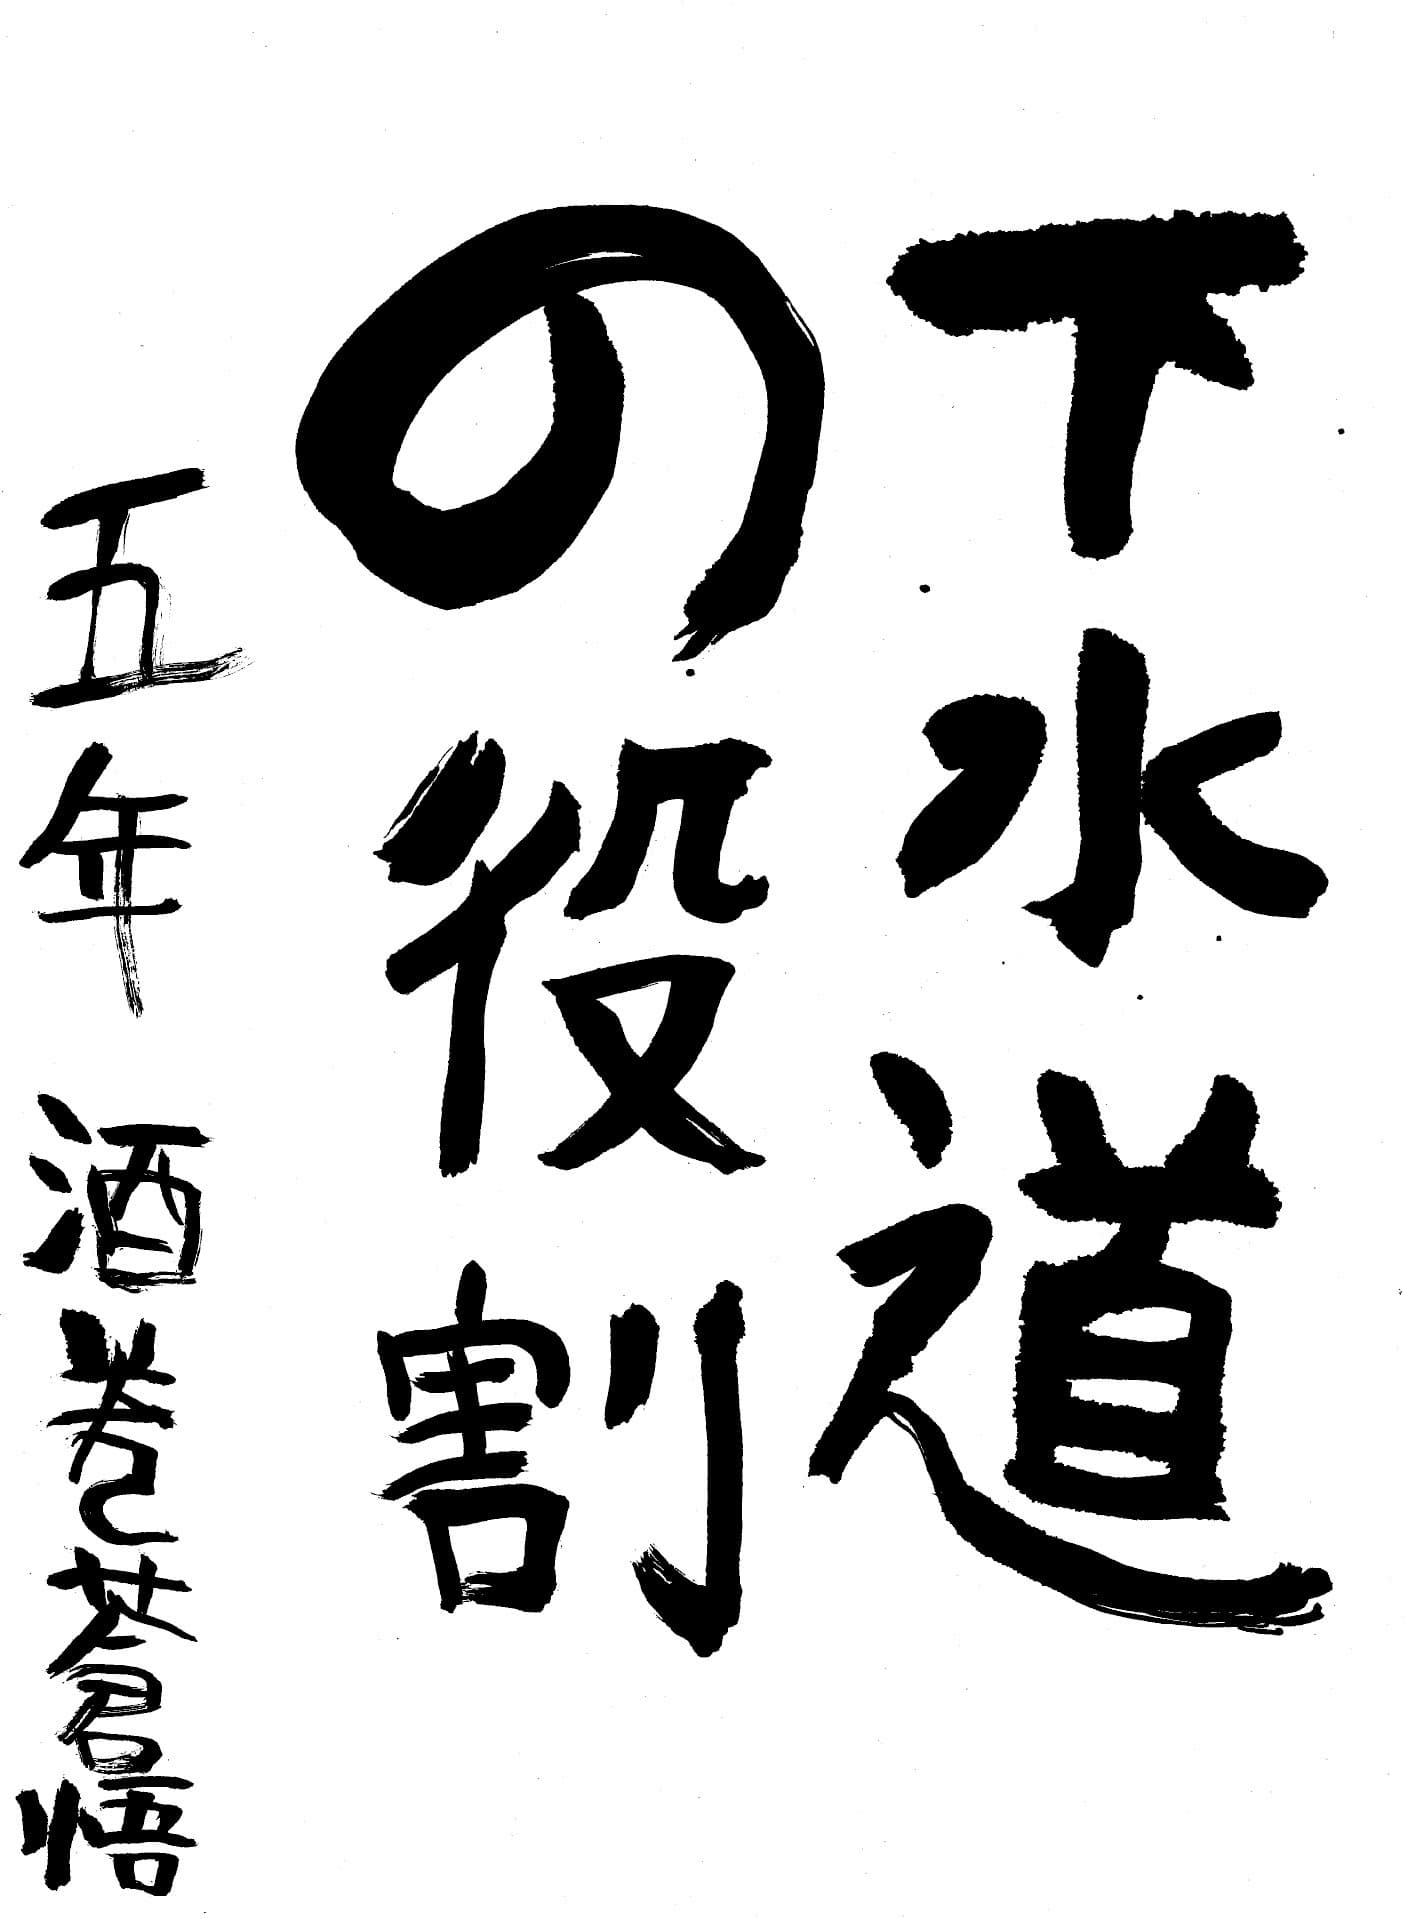 下水道
の役割
五年 酒巻蒼悟